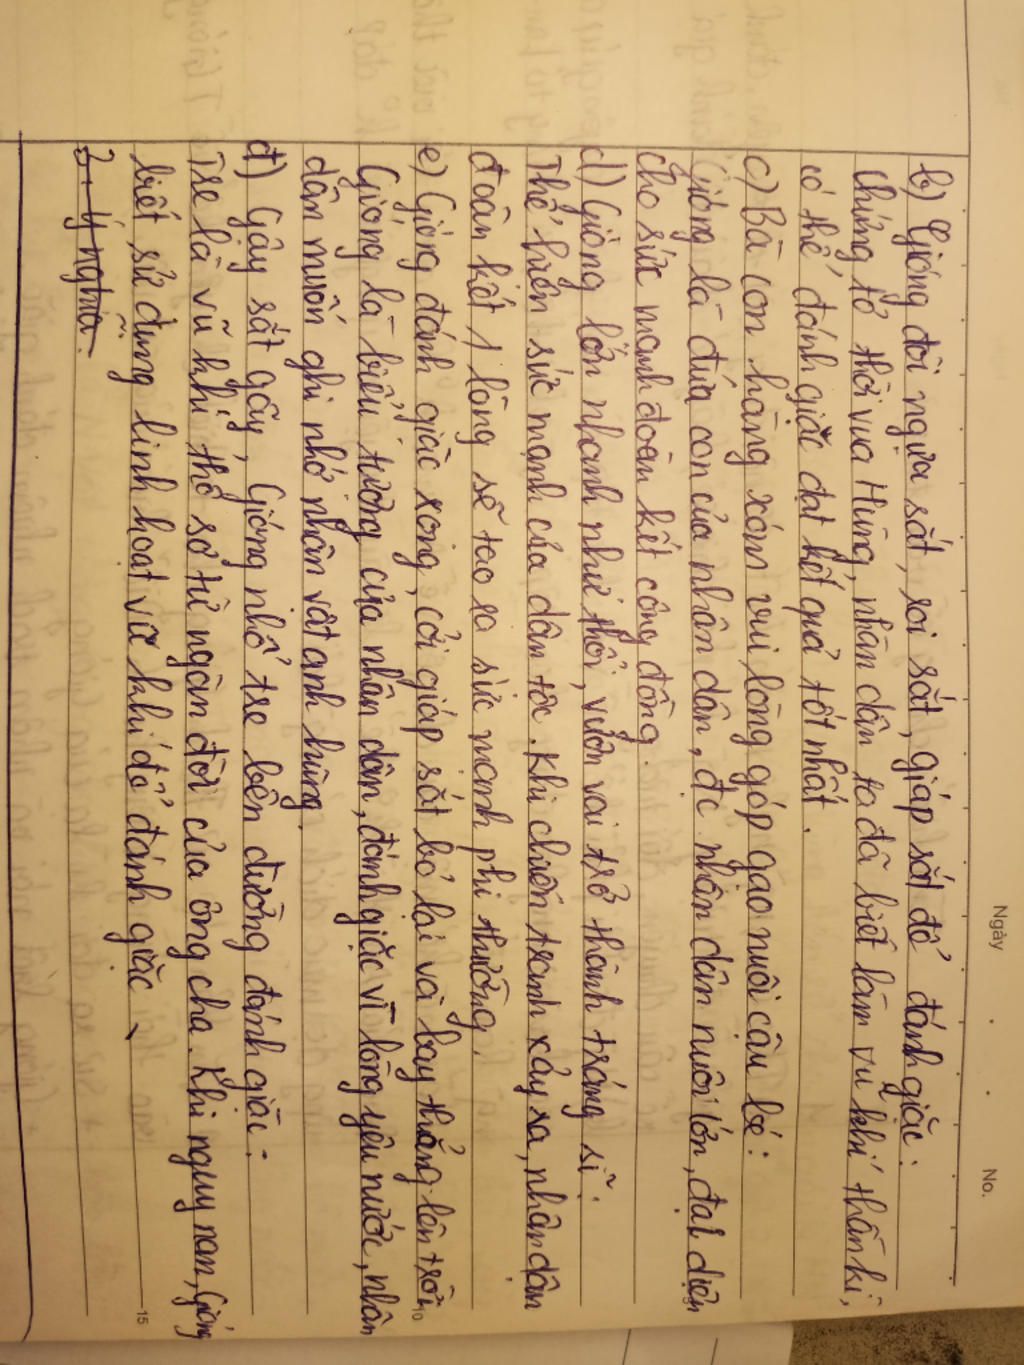 Ngày . . No.
b) Gióng đòi ngựa sắt, roi sắt, giáp sắt để đánh giặc:
chứng tỏ thời vua Hùng, nhân dân ta đã biết làm vũ khí thần kì,
có thể đánh giặc đạt kết quả tốt nhất.
c) Bà con hàng xóm vui lòng góp gạo nuôi cậu bé:
Gióng là đứa con của nhân dân, đc nhân dân nuôi lớn, đại diện
cho sức mạnh đoàn kết cộng đồng.
d) Gióng lớn nhanh như thổi, vươn vai trở thành tráng sĩ:
Thể hiện sức mạnh của dân tộc. Khi chiến tranh xảy ra, nhân dân
đoàn kết 1 lòng sẽ tạo ra sức mạnh phi thường.
e) Gióng đánh giặc xong, cởi giáp sắt bỏ lại và bay thẳng lên trời
10
Gióng là biểu tượng của nhân dân, đánh giặc vì lòng yêu nước, nhân
dân muốn ghi nhớ nhân vật anh hùng.
đ) Gậy sắt gãy, Gióng nhổ tre bên đường đánh giặc:
Tre là vũ khí thô sơ từ ngàn đời của ông cha. Khi nguy nan, Gióng
biết sử dụng linh hoạt vũ khí để đánh giặc
15
3. Ý nghĩa.